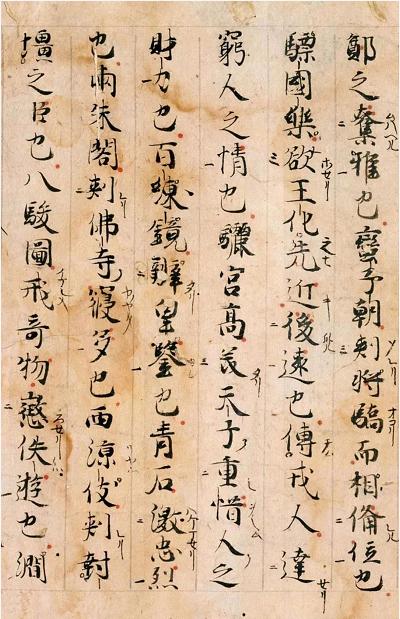 鄭之奪雅也蠻子朝刺將驕而相備位也
驃國樂欲王化先近後遠也傳戎人達
窮人之情也驪宮高美天子重惜人之
財力也百煉鏡辯皇鑒也青石激忠烈
也兩朱閣刺佛寺寖多也西涼伎刺封
壃之臣也八駿圖戒奇物懲佚遊也澗